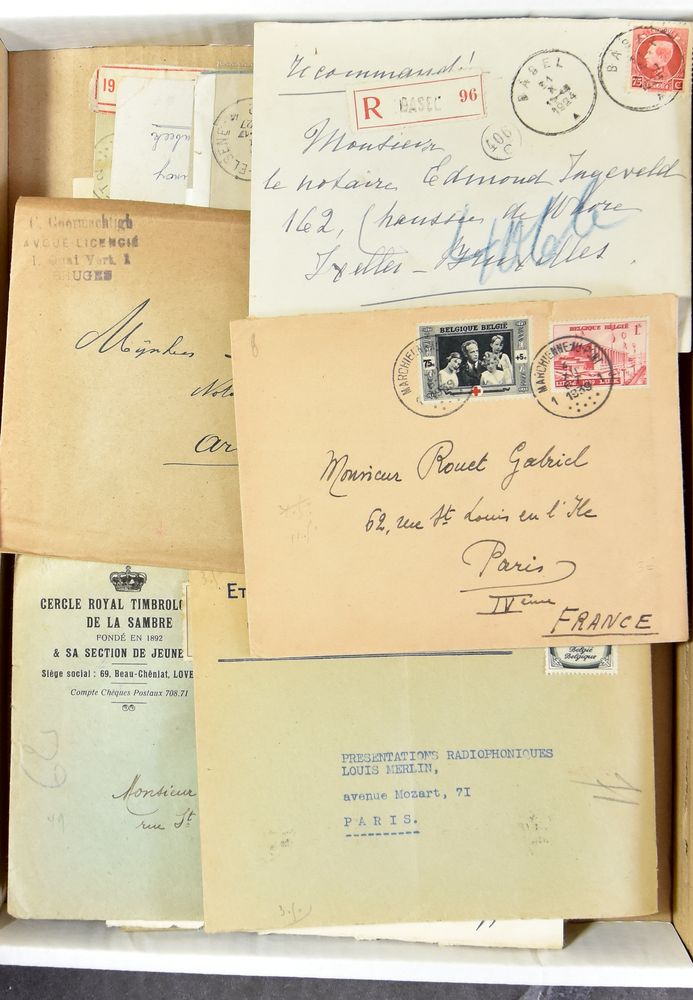 Recommandé!
R BASEL 96
BASEL
31
X
1924
A
BAS
75 C
406
C
Monsieur
le notaire Edmond Ingeveld
162, Chaussée de Wavre
Ixelles - Bruxelles
19
ELSENE
27
C. Goormachtigh
AVOUÉ-LICENCIÉ
1, Quai Vert, 1
BRUGES
Mijnheer
8
MARCHIENNE-AU-PONT
1939
BELGIQUE BELGIË
75c
+5c
MARCHIENNE-AU-PONT
1 1939
BELGIQUE BELGIË
1F
Monsieur Rouet Gabriel
62, rue St Louis en l'Ile
Paris
IVème
FRANCE
CERCLE ROYAL TIMBROLO
DE LA SAMBRE
FONDÉ EN 1892
& SA SECTION DE JEUNE
Siège social : 69, Beau-Chêniat, LOVE
Compte Chèques Postaux 708.71
Monsieur
rue St
ET
België
Belgique
PRESENTATIONS RADIOPHONIQUES
LOUIS MERLIN,
avenue Mozart, 71
PARIS.